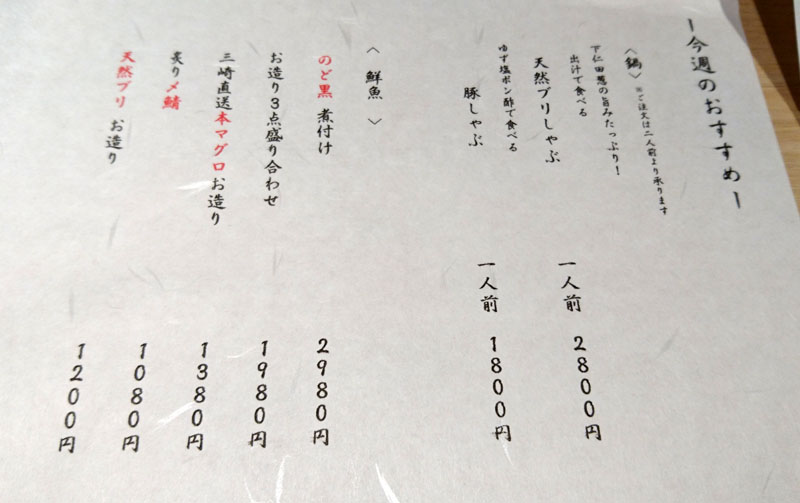 ー今週のおすすめー
〈鍋〉 ※ご注文は二人前より承ります
下仁田葱の旨みたっぷり！
出汁で食べる
天然ブリしゃぶ 一人前 2800円
ゆず塩ポン酢で食べる
豚しゃぶ 一人前 1800円
〈鮮魚〉
のど黒 煮付け 2980円
お造り3点盛り合わせ 1980円
三崎直送本マグロお造り 1380円
炙り〆鯖 1080円
天然ブリ お造り 1200円